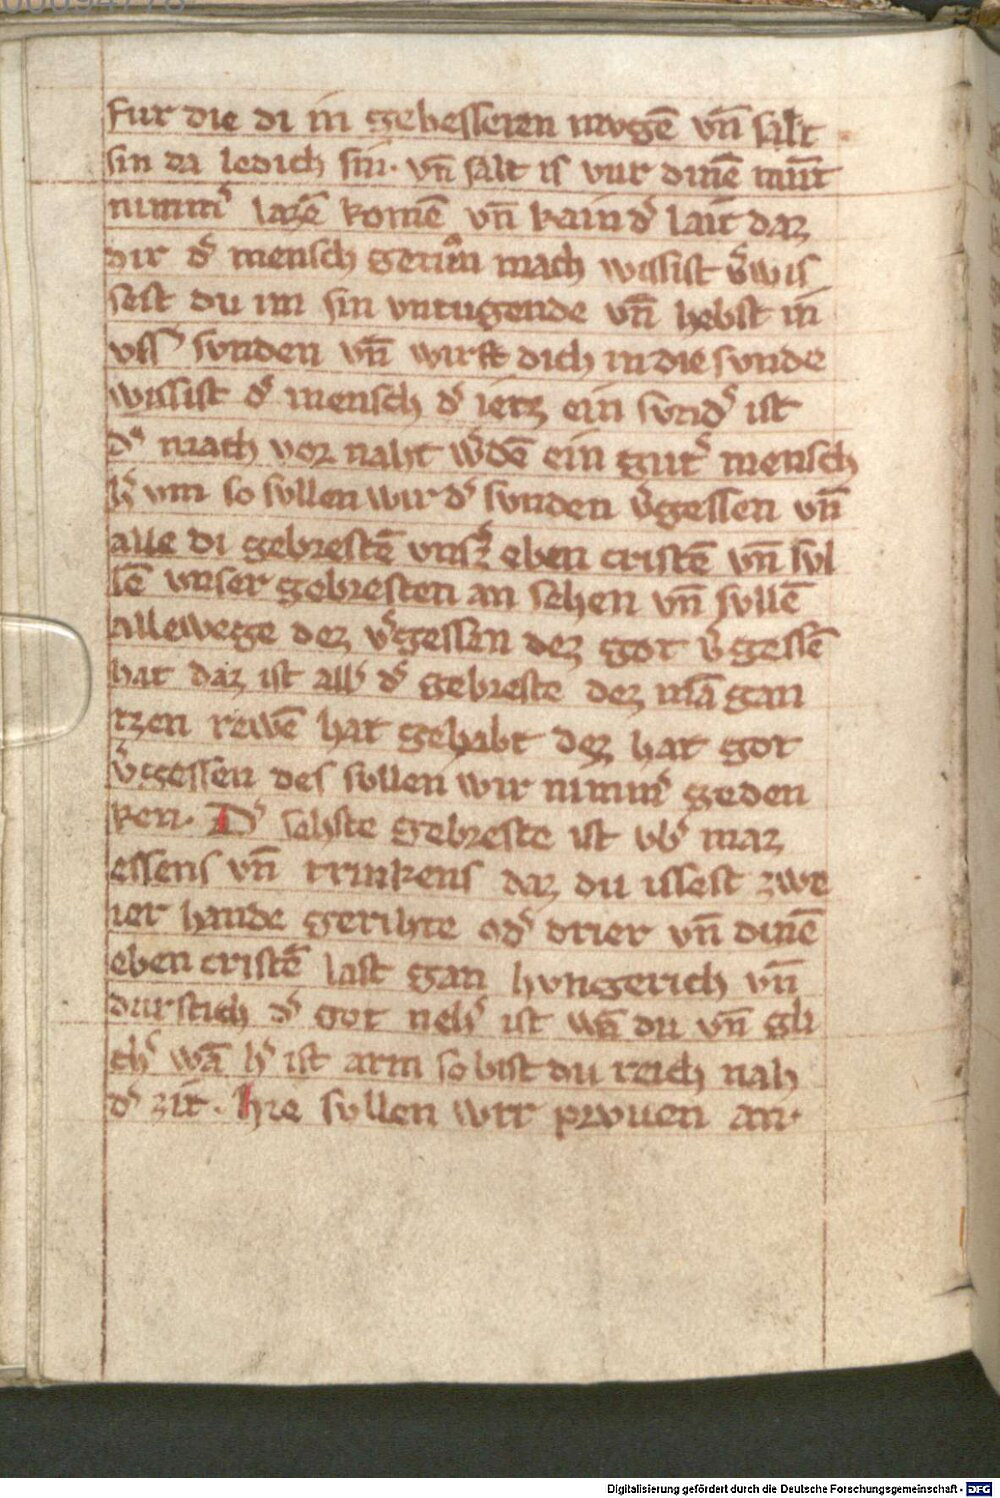 fur die di in gebesseren mvgē vn̄ salt
sin da ledich sin. vn̄ salt is vur dinē mūt
nimm̾ lazē komē vn̄ kain d̾ lait daz
dir d̾ mensch getůn mach wissist v̾wis
sest du im sin vntugende vn̄ hebst in
vff sunden vn̄ wirft dich in die svnde
wissist d̾ mensch d̾ ietz ein svnd̾ ist
d̾ mach vor naht w̾dē ein gut̾ mensch
h̾ vm so svllen wir d̾ svnden v̾gessen vn̄
alle di gebrestē vns̾ eben cristē vn̄ svl
lē vnser gebresten an sehen vn̄ svllē
allewege dez v̾gessen dez got v̾gessē
hat daz ist all̾ d̾ gebreste dez mā gan
tzen rewē hat gehabt dez hat got
v̾gessen des svllen wir nimm̾ geden
ken. D̾ sehste gebreste ist vb̾ maz
essens vn̄ trinkens daz du issest zwe
ier hande gerihte od̾ drier vn̄ dinē
eben cristē last gan hvngerich vn̄
durstich d̾ got neh̾ ist wā du vn̄ gli
ch̾ wā h̾ ist arm so bist du reich nah
d̾ zit. Hie svllen wir prvuen an.
Digitalisierung gefördert durch die Deutsche Forschungsgemeinschaft - DFG